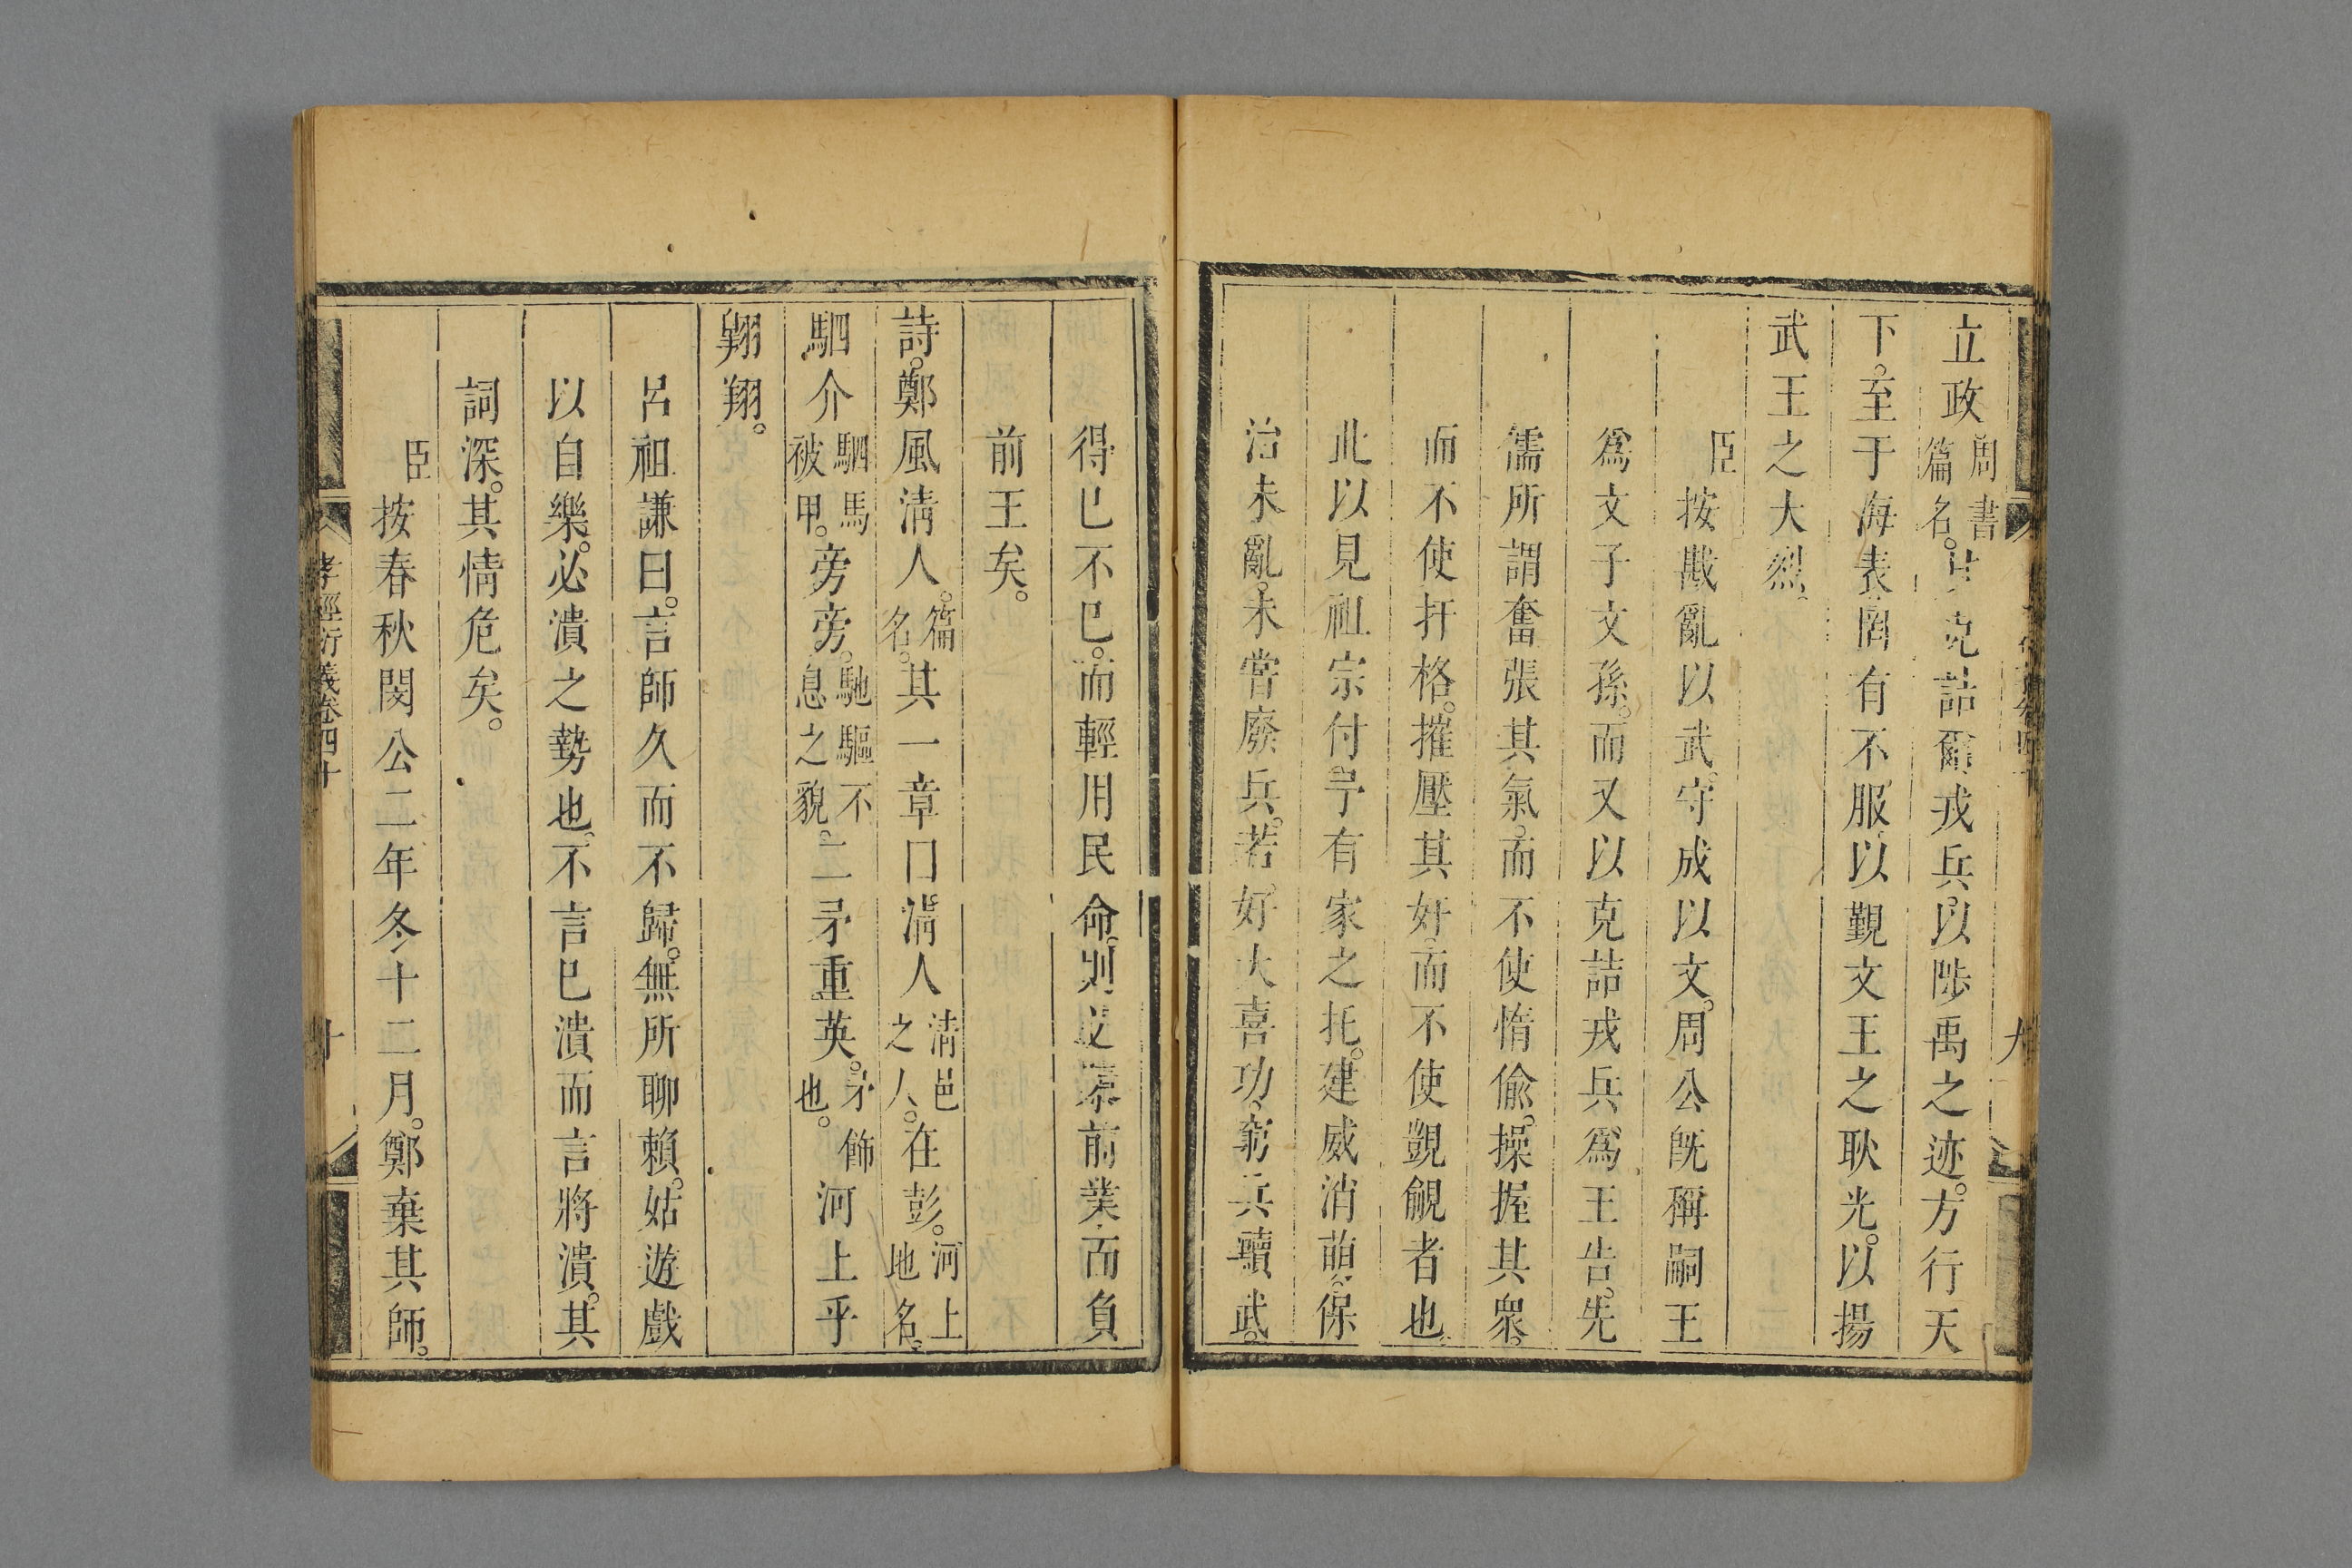 立政周書篇名。其克詰爾戎兵。以陟禹之迹。方行天
下。至于海表。罔有不服。以覲文王之耿光。以揚
武王之大烈。
臣按戡亂以武。守成以文。周公旣稱嗣王
爲文子文孫。而又以克詰戎兵。爲王告。先
儒所謂奮張其氣。而不使惰偸。操握其衆。
而不使扞格。摧壓其奸。而不使覬覦者也。
此以見祖宗付予有家之托。建威消萌。保
治未亂。未嘗廢兵。若好大喜功。窮兵黷武。
得已不已。而輕用民命。則足以前業而負
前王矣。
詩。鄭風淸人。篇名。其一章曰淸人淸邑之人。在彭。河上地名。
駟介駟馬被甲。旁旁。馳驅不息之貌。二矛重英。矛飾也。河上乎
翱翔。
呂祖謙曰。言師久而不歸。無所聊賴。姑遊戲
以自樂。必潰之勢也。不言已潰而言將潰。其
詞深。其情危矣。
臣按春秋閔公二年冬十二月。鄭棄其師。
孝經衍義卷四十
十
九